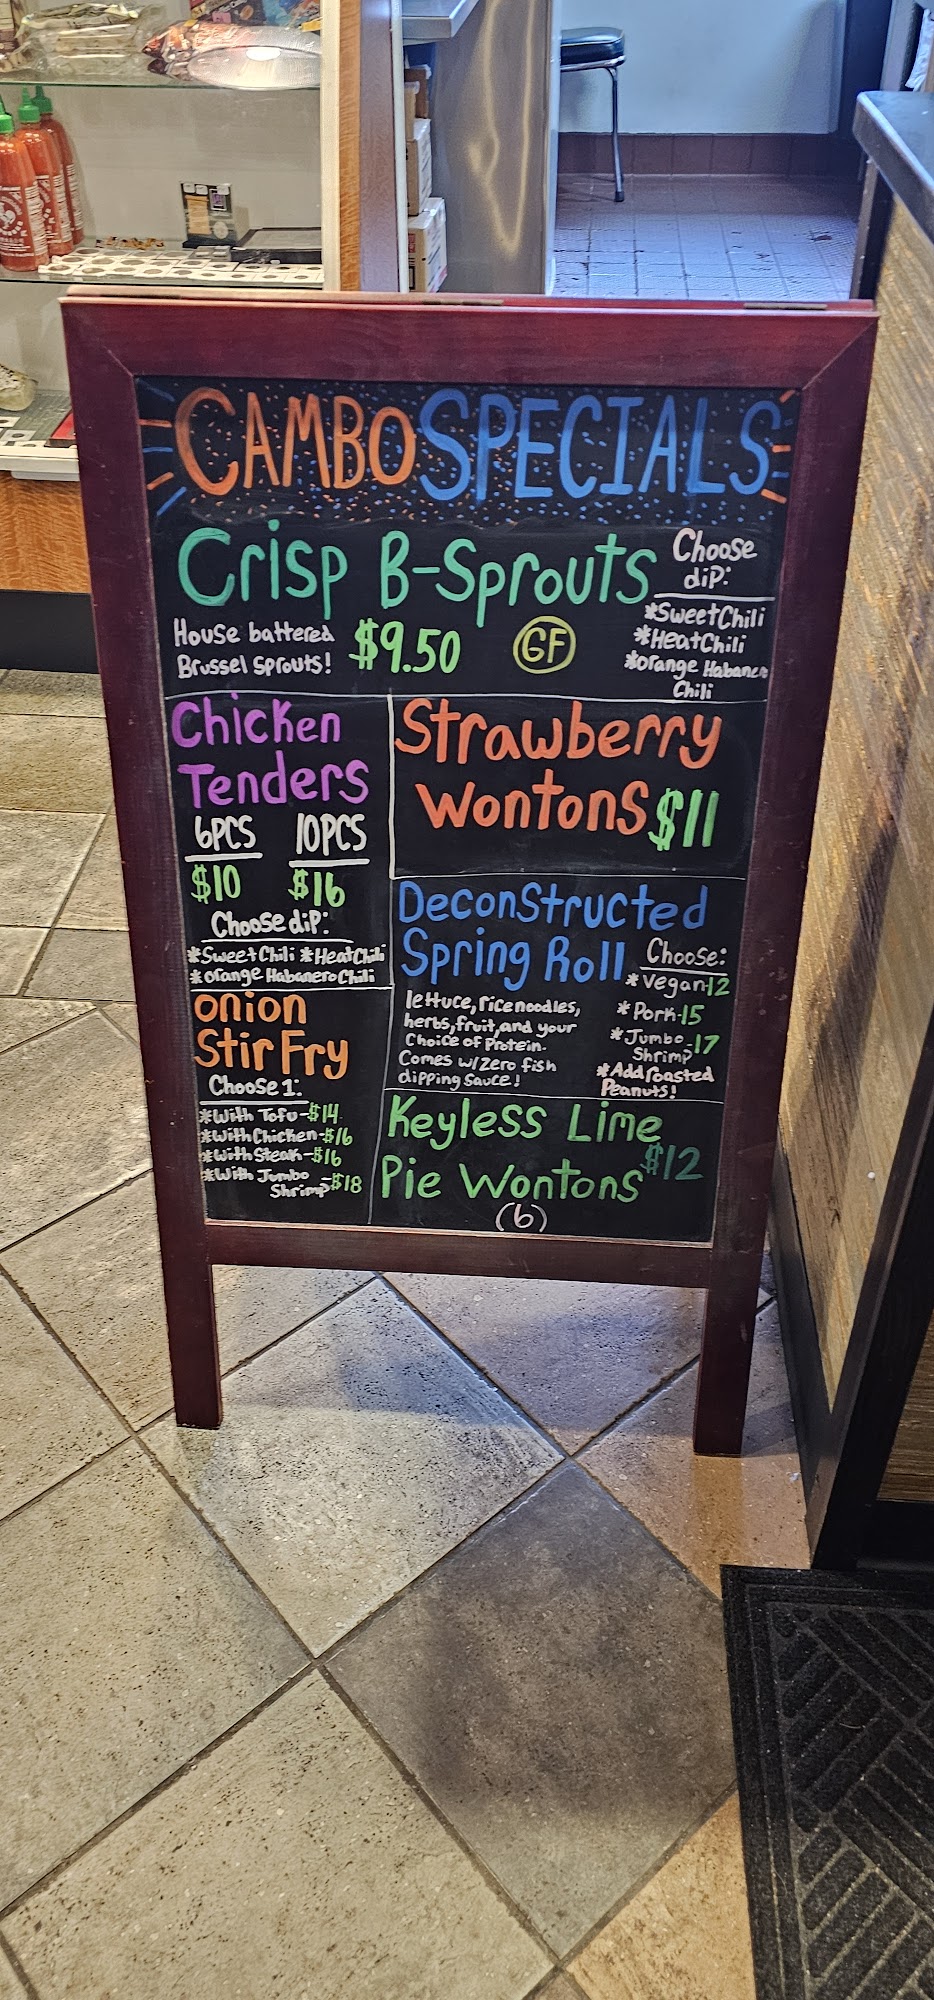 CAMBO SPECIALS
Crisp B-Sprouts
House battered
Brussel sprouts!
$9.50
GF
Choose
dip:
*Sweet Chili
*Heat Chili
*Orange Habanero
Chili
Chicken
Tenders
6PCS 10PCS
$10 $16
Choose dip:
*Sweet Chili *Heat Chili
*Orange Habanero Chili
Strawberry
Wontons $11
Deconstructed
Spring Roll
lettuce, rice noodles,
herbs, fruit, and your
Choice of Protein.
Comes w/ Zero fish
dipping Sauce!
Choose:
*Vegan-12
*Pork-15
*Jumbo
Shrimp-17
*Add roasted
Peanuts!
Onion
Stir Fry
Choose 1:
*With Tofu-$14
*With Chicken-$16
*With Steak-$16
*With Jumbo
Shrimp-$18
Keyless Lime
Pie Wontons $12
(6)